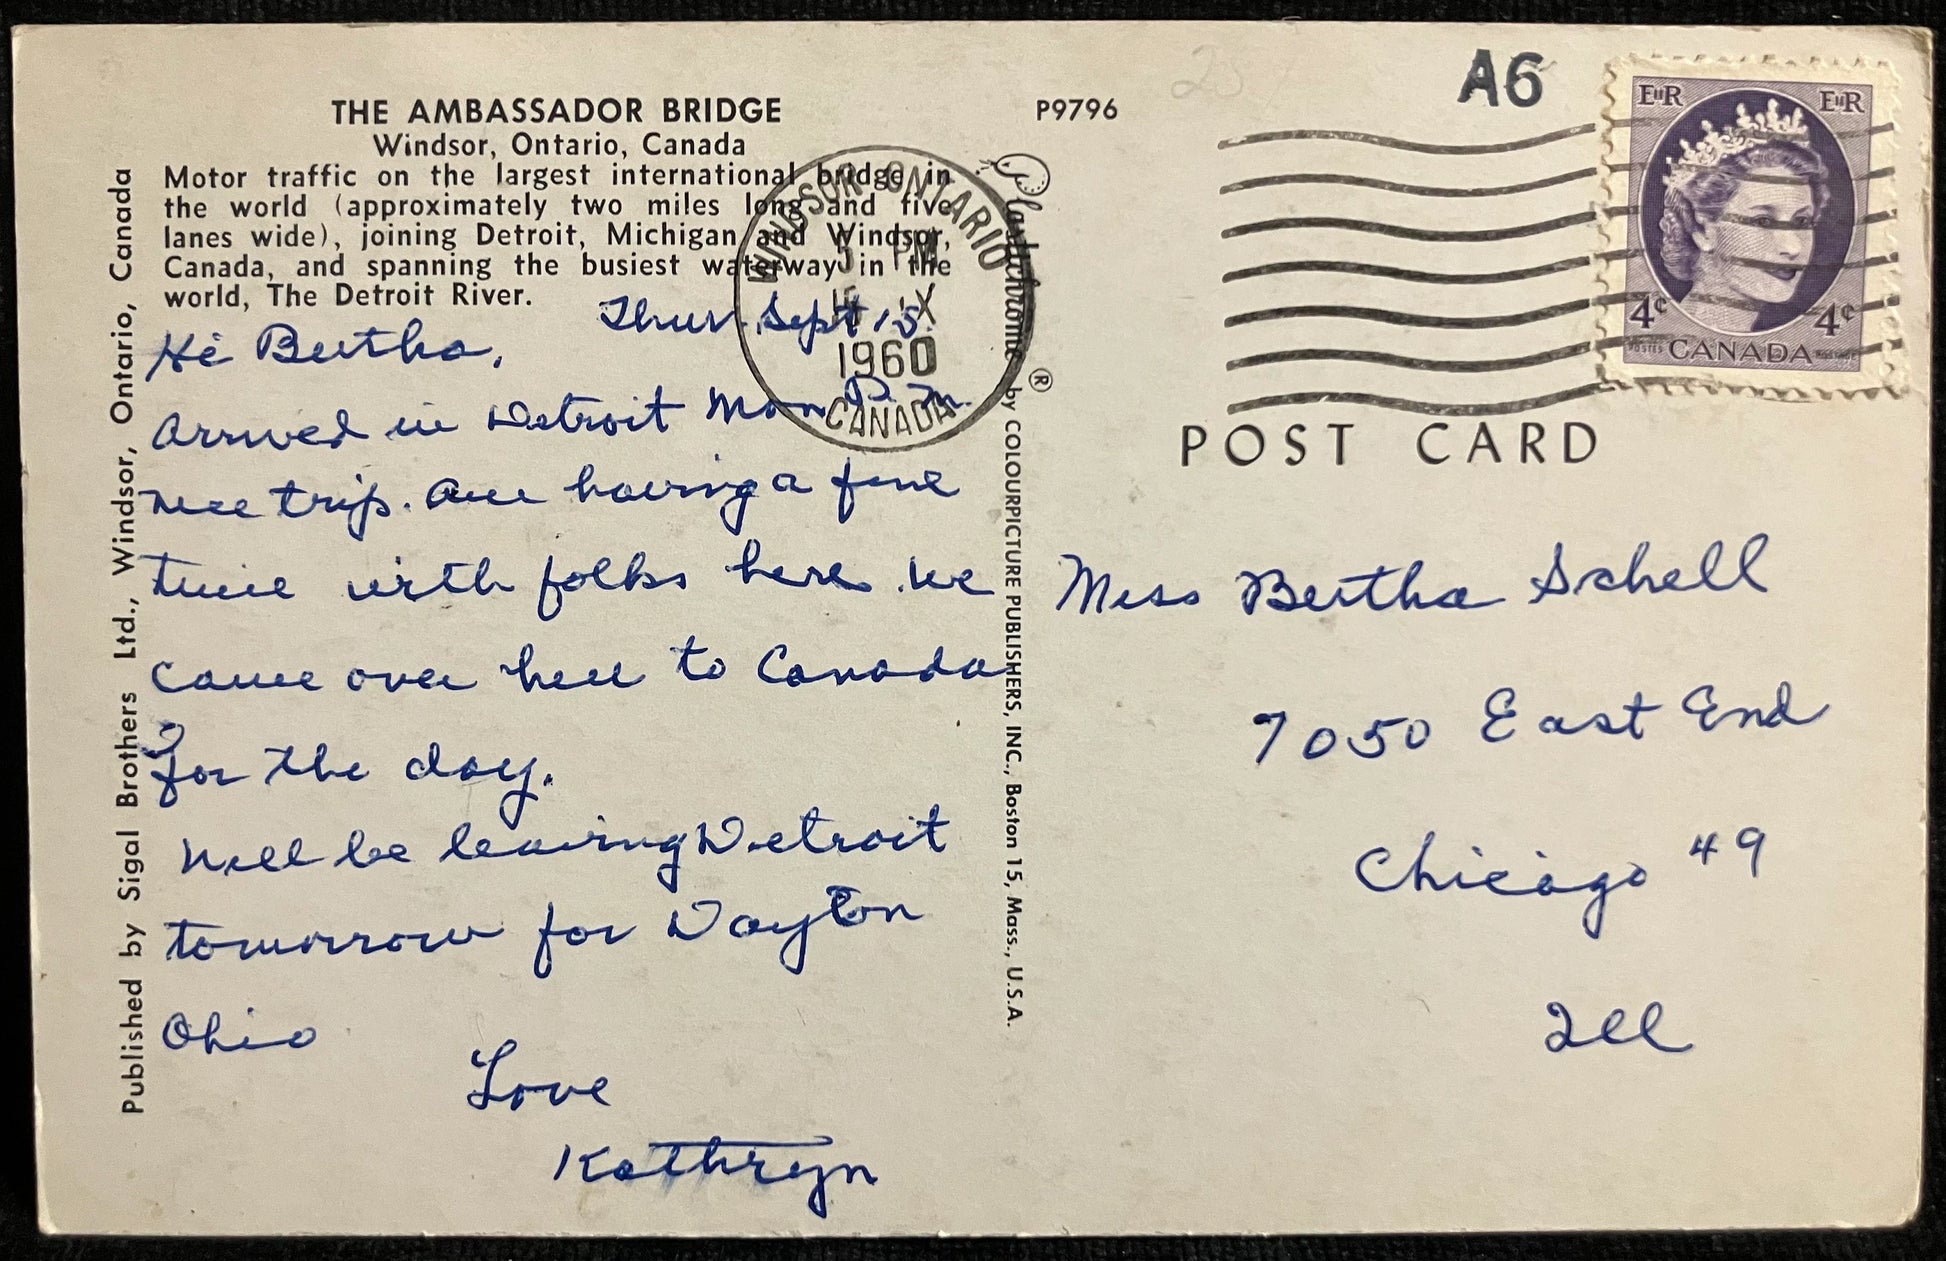 THE AMBASSADOR BRIDGE
Windsor, Ontario, Canada
Motor traffic on the largest international bridge in
the world (approximately two miles long and five
lanes wide), joining Detroit, Michigan and Windsor,
Canada, and spanning the busiest waterway in the
world, The Detroit River.
Thur. Sept 15.
Hi Bertha,
Arrived in Detroit Mon P.M.
nice trip. Are having a fine
time with folks here. We
came over here to Canada
for the day.
Will be leaving Detroit
tomorrow for Dayton
Ohio
Love
Kathryn
Published by Sigal Brothers Ltd., Windsor, Ontario, Canada
WINDSOR ONTARIO
5 PM
IX
1960
CANADA
Plastichrome ® by COLOURPICTURE PUBLISHERS, INC., Boston 15, Mass., U.S.A.
P9796
A6
EIIR EIIR
4¢ 4¢
POSTES CANADA POSTAGE
POST CARD
Miss Bertha Schell
7050 East End
Chicago 49
Ill